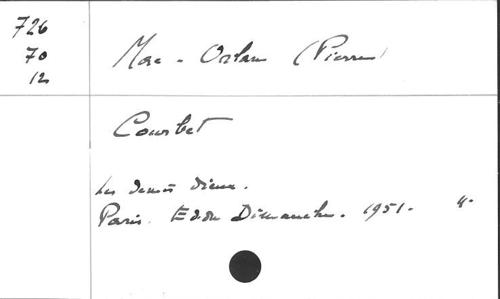 726
70
12
Mac-Orlan (Pierre)
Courbet
Les demis dieux.
Paris. Edon Dimanche. 1951. 4.